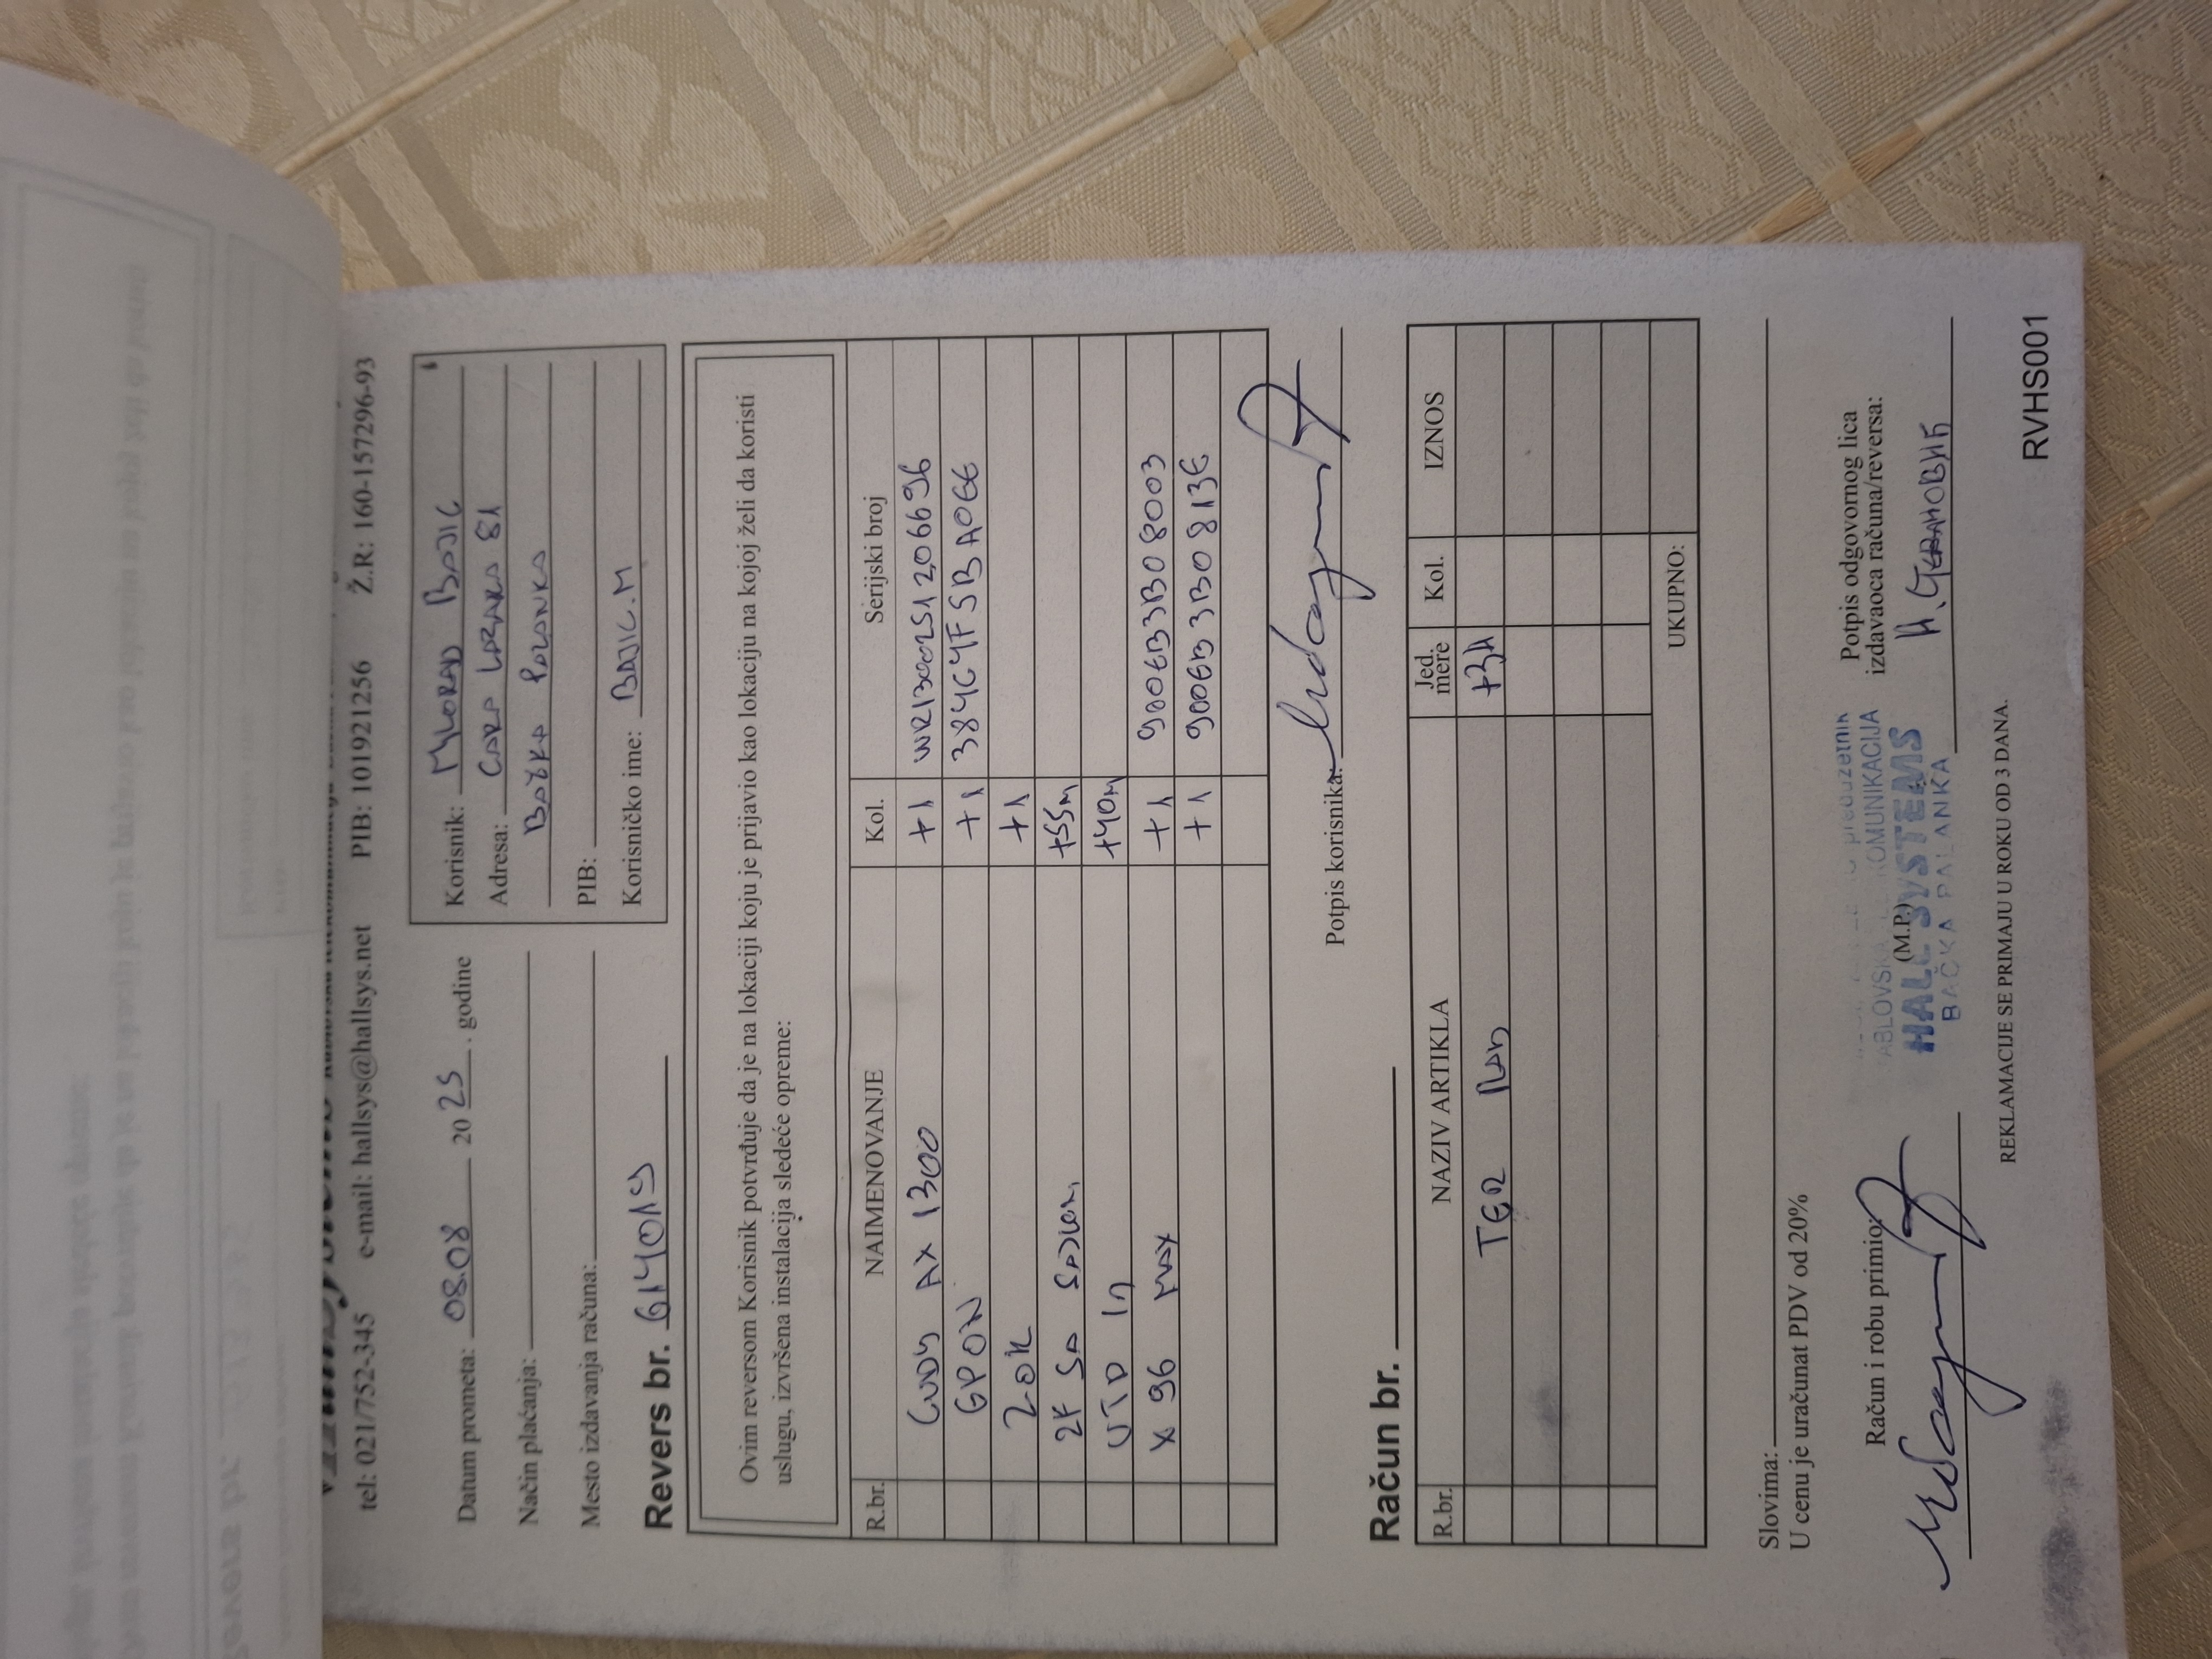 tel: 021/752-345 e-mail: hallsys@hallsys.net PIB: 101921256 Ž.R: 160-157296-93
Datum prometa: 08.08 2025. godine
Način plaćanja:
Mesto izdavanja računa:
Korisnik: MILORAD BAJIC
Adresa: CARA LAZARA 81
BAČKA PALANKA
PIB:
Korisničko ime: BAJIC.M
Revers br. 614019
Ovim reversom Korisnik potvrđuje da je na lokaciji koju je prijavio kao lokaciju na kojoj želi da koristi
uslugu, izvršena instalacija sledeće opreme:
R.br. NAIMENOVANJE Kol. Serijski broj
CUDY AX 1300 +1 WR1300251206696
GPON +1 384C4F5BA0EE
ZOK +1
2F SA +55m
UTP +40m
X 96 MAX +1 9006B33B08003
+1 9006B33B0813E
Potpis korisnika:
Račun br.
R.br. NAZIV ARTIKLA Jed. mere Kol. IZNOS
TER +3h
UKUPNO:
Slovima:
U cenu je uračunat PDV od 20%
Račun i robu primio:
(M.P.)
KOMUNIKACIJA
HALL SYSTEMS
BAČKA PALANKA
Potpis odgovornog lica
izdavaoca računa/reversa:
REKLAMACIJE SE PRIMAJU U ROKU OD 3 DANA.
RVHS001